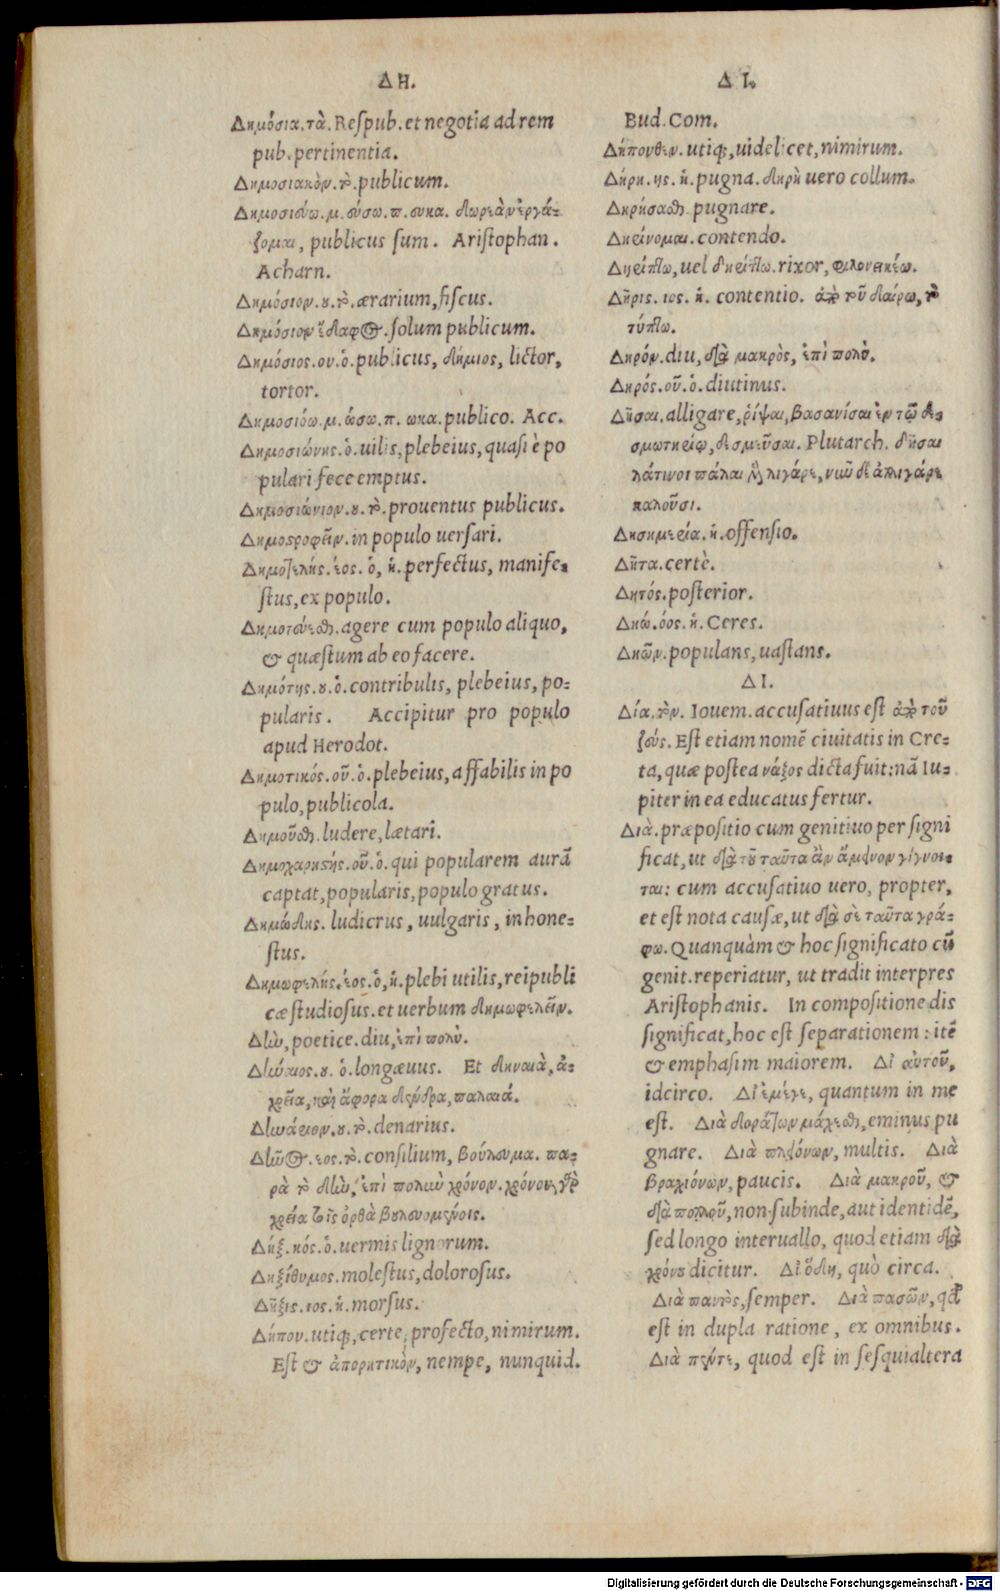 ΔΗ.
Δημόσια.τὰ.Respub.et negotia ad rem
pub.pertinentia.
Δημοσιακὸν.τὸ.publicum.
Δημοσιεύω.μ.εύσω.π.ευκα. δωρεὰν ἐργά-
ζομαι, publicus sum. Aristophan.
Acharn.
Δημόσιον.ου.τὸ.ærarium,fiscus.
Δημόσιον ἔδαφος.solum publicum.
Δημόσιος.ου.ὁ.publicus, δήμιος, lictor,
tortor.
Δημοσιόω.μ.ώσω.π. ωκα.publico. Acc.
Δημοσιώνης.ὁ.uilis,plebeius,quasi è po
pulari fece emptus.
Δημοσιώνιον.ου.τὸ.prouentus publicus.
Δημοστροφεῖν.in populo uersari.
Δημοτελής.έος.ὁ, ἡ.perfectus, manife-
stus,ex populo.
Δημοτεύεσθαι.agere cum populo aliquo,
& quæstum ab eo facere.
Δημότης.ου.ὁ.contribulis, plebeius, po-
pularis. Accipitur pro populo
apud Herodot.
Δημοτικός.οῦ.ὁ.plebeius,affabilis in po
pulo,publicola.
Δημοῦσθαι.ludere,lætari.
Δημοχαρηστής.οῦ.ὁ.qui popularem aurã
captat,popularis,populo gratus.
Δημώδης. ludicrus, uulgaris, inhone-
stus.
Δημωφελής.έος.ὁ,ἡ.plebi utilis,reipubli
cæ studiosus.et uerbum δημωφελεῖν.
Δὴν, poetice.diu,ἐπὶ πολύ.
Δηναιός.οῦ. ὁ.longæuus. Et δηναιὰ, ἀ-
χρεῖα,καὶ ἄφορα δένδρα,παλαιά.
Δηνάριον.ου.τὸ.denarius.
Δῆνος.εος.τὸ.consilium, βούλευμα. πα-
ρὰ τὸ δὴν, ἐπὶ πολὺν χρόνον.χρόνου γὰρ
χρεία τοῖς ὀρθὰ βουλευομένοις.
Δήξ.κός.ὁ.uermis lignorum.
Δηξίθυμος.molestus,dolorosus.
Δῆξις.ιος.ἡ.morsus.
Δήπου.utiq;,certe,profecto,nimirum.
Est & ἀπορητικὸν, nempe, nunquid.
ΔΙ.
Bud.Com.
Δήπουθεν.utiq;,uidelicet,nimirum.
Δήρη.ης.ἡ.pugna.δηρὴ uero collum.
Δηρήσασθαι.pugnare.
Δηρίνομαι.contendo.
Δηρίπτω,uel δηρίττω.rixor,φιλονεικέω.
Δῆρις.ιος.ἡ. contentio. ἀπὸ τοῦ δαίρω,τὸ
τύπτω.
Δηρόν.diu,διὰ μακρὸς,ἐπὶ πολὺ.
Δηρός.οῦ.ὁ.diutinus.
Δῆσαι.alligare,ῥίψαι,βασανίσαι ἐν τῷ δε-
σμωτηρίῳ,δεσμεῦσαι. Plutarch. δῆσαι
λάτινοι πάλαι μὲν λιγάρε,νῦν δὲ ἀλλιγάρε
καλοῦσι.
Δησημερία.ἡ.offensio.
Δῆτα.certè.
Δητός.posterior.
Δηώ.όος.ἡ.Ceres.
Δηῶν.populans,uastans.
ΔΙ.
Δία.τὸν. Iouem.accusatiuus est ἀπὸ τοῦ
ζεύς. Est etiam nomē ciuitatis in Cre-
ta,quæ postea νάξος dicta fuit:nã Iu-
piter in ea educatus fertur.
Διὰ.præpositio cum genitiuo per signi
ficat, ut διὰ τοῦ ταῦτα ἂν ἄμεινον γίγνοι-
ται: cum accusatiuo uero, propter,
et est nota causæ,ut διὰ σὲ ταῦτα γρά-
φω. Quanquàm & hoc significato cū
genit.reperiatur, ut tradit interpres
Aristophanis. In compositione dis
significat,hoc est separationem: itē
& emphasim maiorem. Δι αὐτοῦ,
idcirco. Δι ἐμέγε, quantum in me
est. Διὰ δοράτων μάχεσθαι,eminus pu
gnare. Διὰ πλειόνων, multis. Διὰ
βραχιόνων, paucis. Διὰ μακροῦ, &
διὰ πολλοῦ,non subinde,aut identidē,
sed longo interuallo, quod etiam διὰ
χρόνου dicitur. Δι ὅδη, quò circa.
Διὰ παντὸς,semper. Διὰ πασῶν, qd
est in dupla ratione, ex omnibus.
Διὰ πέντε, quod est in sesquialtera
Digitalisierung gefördert durch die Deutsche Forschungsgemeinschaft - DFG